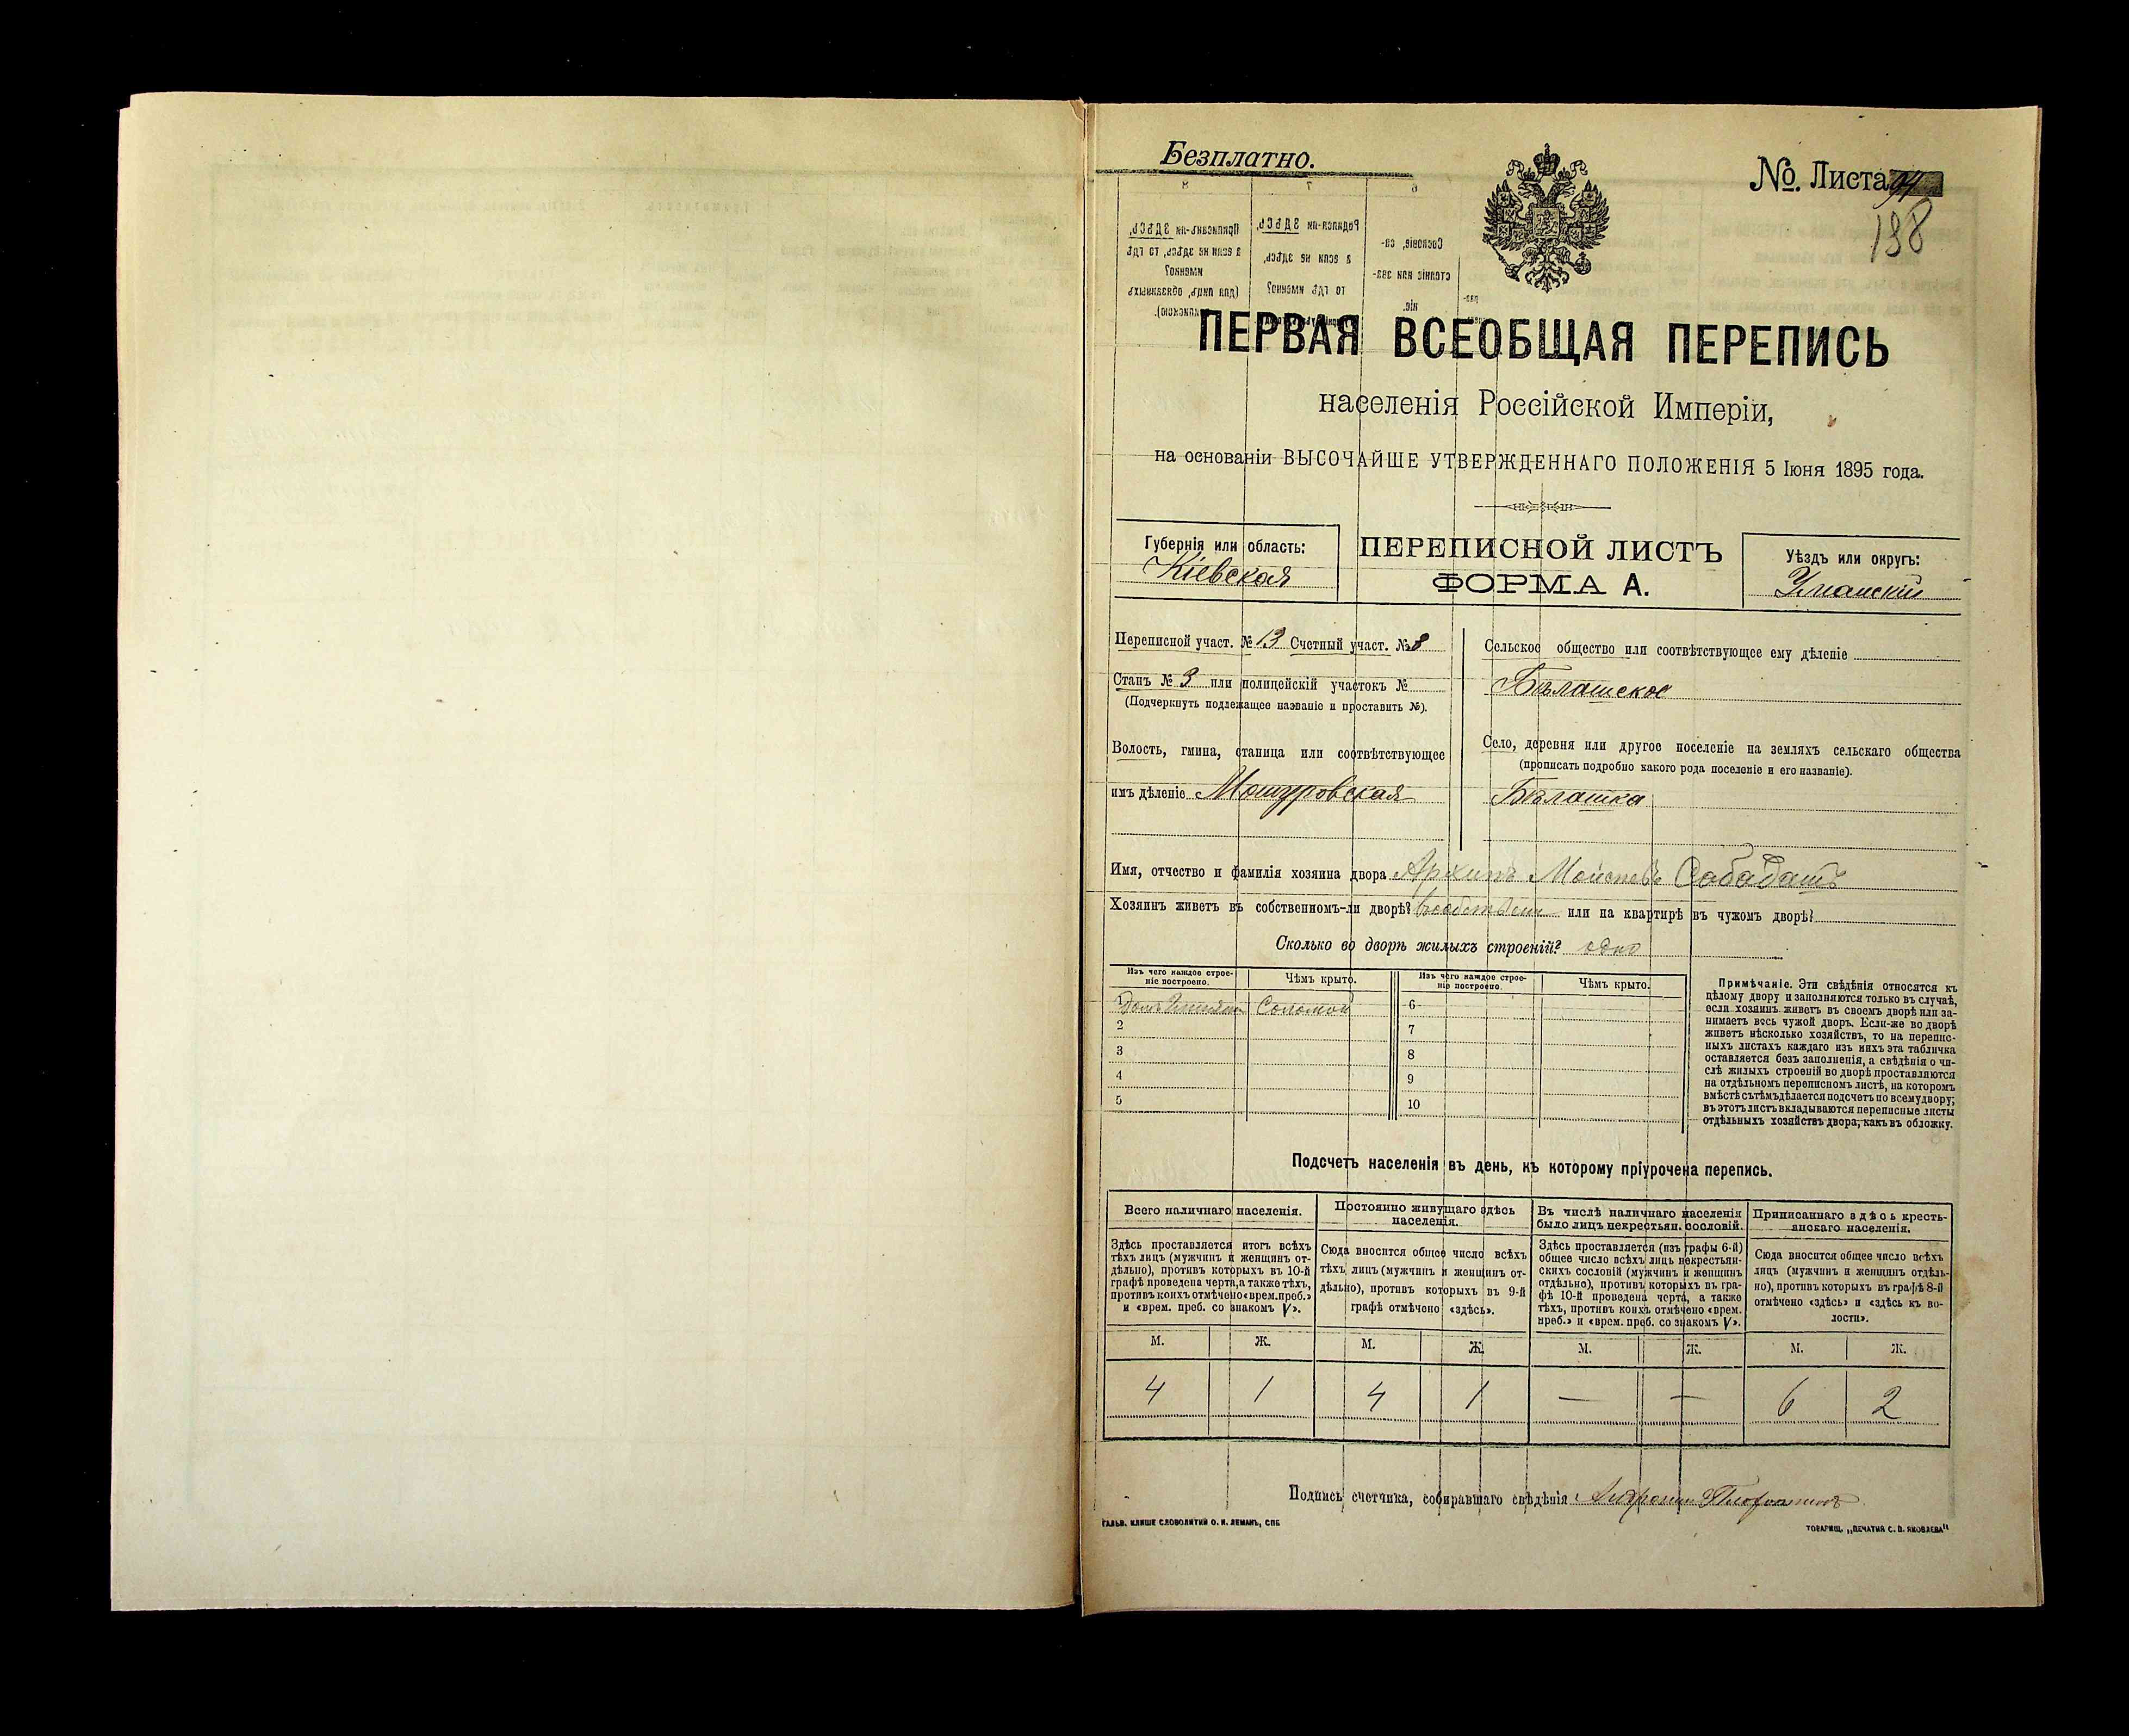 Безплатно.
No. Листа 94
198
8 7 6
Приписанъ-ли ЗДѢСЬ, Родился-ли ЗДѢСЬ, Сословіе, со-
а если не здѣсь, то гдѣ а если не здѣсь, стояніе или зва-
именно? то гдѣ именно? ніе.
(для лицъ, обязанныхъ
ПЕРВАЯ ВСЕОБЩАЯ ПЕРЕПИСЬ
населенія Россійской Имперіи,
на основаніи ВЫСОЧАЙШЕ УТВЕРЖДЕННАГО ПОЛОЖЕНІЯ 5 Іюня 1895 года.
Губернія или область:
Кіевская
ПЕРЕПИСНОЙ ЛИСТЪ
ФОРМА А.
Уѣздъ или округъ:
Уманскій
Переписной участ. № 13 Счетный участ. № 8
Станъ № 3 или полицейскій участокъ №
(Подчеркнуть подлежащее названіе и проставить №).
Волость, гмина, станица или соотвѣтствующее
имъ дѣленіе Мошуровская
Сельское общество или соотвѣтствующее ему дѣленіе
Бѣлашское
Село, деревня или другое поселеніе на земляхъ сельскаго общества
(прописать подробно какого рода поселеніе и его названіе).
Бѣлашка
Имя, отчество и фамилія хозяина двора Архипъ Моисеевъ Сабадашъ
Хозяинъ живетъ въ собственномъ-ли дворѣ? или на квартирѣ въ чужомъ дворѣ?
Сколько во дворѣ жилыхъ строеній? одно
Изъ чего каждое строе-
ніе построено.
Чѣмъ крыто.
Изъ чего каждое строе-
ніе построено.
Чѣмъ крыто.
1 Соломой 6
2 7
3 8
4 9
5 10
Примѣчаніе. Эти свѣдѣнія относятся къ
цѣлому двору и заполняются только въ случаѣ,
если хозяинъ живетъ въ своемъ дворѣ или за-
нимаетъ весь чужой дворъ. Если-же во дворѣ
живетъ нѣсколько хозяйствъ, то на перепис-
ныхъ листахъ каждаго изъ нихъ эта табличка
оставляется безъ заполненія, а свѣдѣнія о чи-
слѣ жилыхъ строеній во дворѣ проставляются
на отдѣльномъ переписномъ листѣ, на которомъ
вмѣстѣ съ тѣмъ дѣлается подсчетъ по всему двору;
въ этотъ листъ вкладываются переписные листы
отдѣльныхъ хозяйствъ двора, какъ въ обложку.
Подсчетъ населенія въ день, къ которому пріурочена перепись.
Всего наличнаго населенія.
Здѣсь проставляется итогъ всѣхъ
тѣхъ лицъ (мужчинъ и женщинъ от-
дѣльно), противъ которыхъ въ 10-й
графѣ проведена черта, а также тѣхъ,
противъ коихъ отмѣчено «врем. преб.»
и «врем. преб. со знакомъ V».
Постоянно живущаго здѣсь
населенія.
Сюда вносится общее число всѣхъ
тѣхъ лицъ (мужчинъ и женщинъ от-
дѣльно), противъ которыхъ въ 9-й
графѣ отмѣчено «здѣсь».
Въ числѣ наличнаго населенія
было лицъ некрестьян. сословій.
Здѣсь проставляется (изъ графы 6-й)
общее число всѣхъ лицъ некрестьян-
скихъ сословій (мужчинъ и женщинъ
отдѣльно), противъ которыхъ въ гра-
фѣ 10-й проведена черта, а также
тѣхъ, противъ коихъ отмѣчено «врем.
преб.» и «врем. преб. со знакомъ V».
Приписаннаго здѣсь кресть-
янскаго населенія.
Сюда вносится общее число всѣхъ
лицъ (мужчинъ и женщинъ отдѣль-
но), противъ которыхъ въ графѣ 8-й
отмѣчено «здѣсь» и «здѣсь къ во-
лости».
М. Ж. М. Ж. М. Ж. М. Ж.
4 1 4 1 — — 6 2
Подпись счетчика, собиравшаго свѣдѣнія
ГАЛЬВ. КЛИШЕ СЛОВОЛИТНИ О. И. ЛЕМАНЪ, СПБ
ТОВАРИЩ. „ПЕЧАТНЯ С. П. ЯКОВЛЕВА"